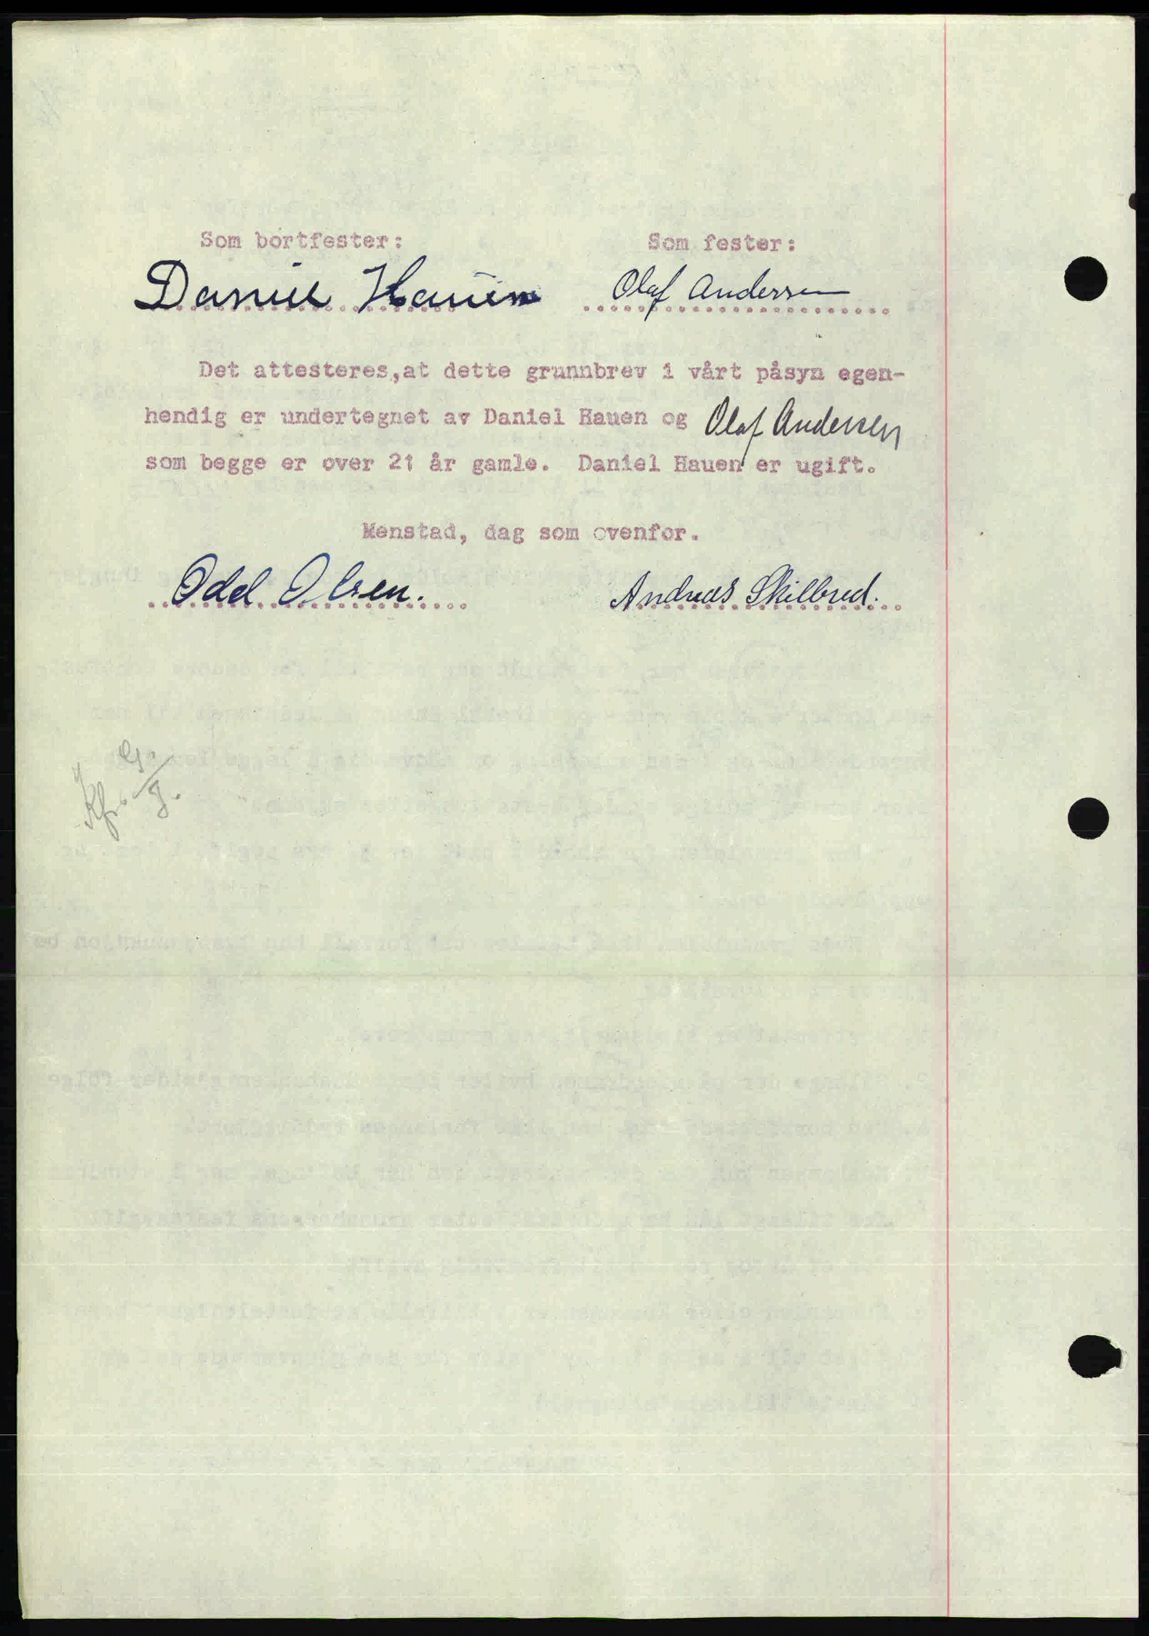 Som bortfester: Som fester:
Daniel Hauen Olaf Andersen
Det attesteres,at dette grunnbrev i vårt påsyn egen-
hendig er undertegnet av Daniel Hauen og Olaf Andersen
som begge er over 21 år gamle. Daniel Hauen er ugift.
Menstad, dag som ovenfor.
Odd Olsen. Andreas Skilbred.